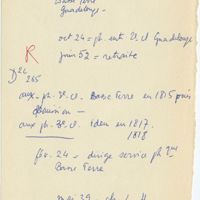 Basse Terre
Guadeloupe -
oct 24 = ph. ent. 2e cl Guadeloupe
R
juin 52 = retraite
D2c
265
aux. ph. 3e cl. Basse Terre en 1815 puis
aux ph. 3e cl. idem en 1817.
1818
fev. 24 = dirige service phien
Basse Terre